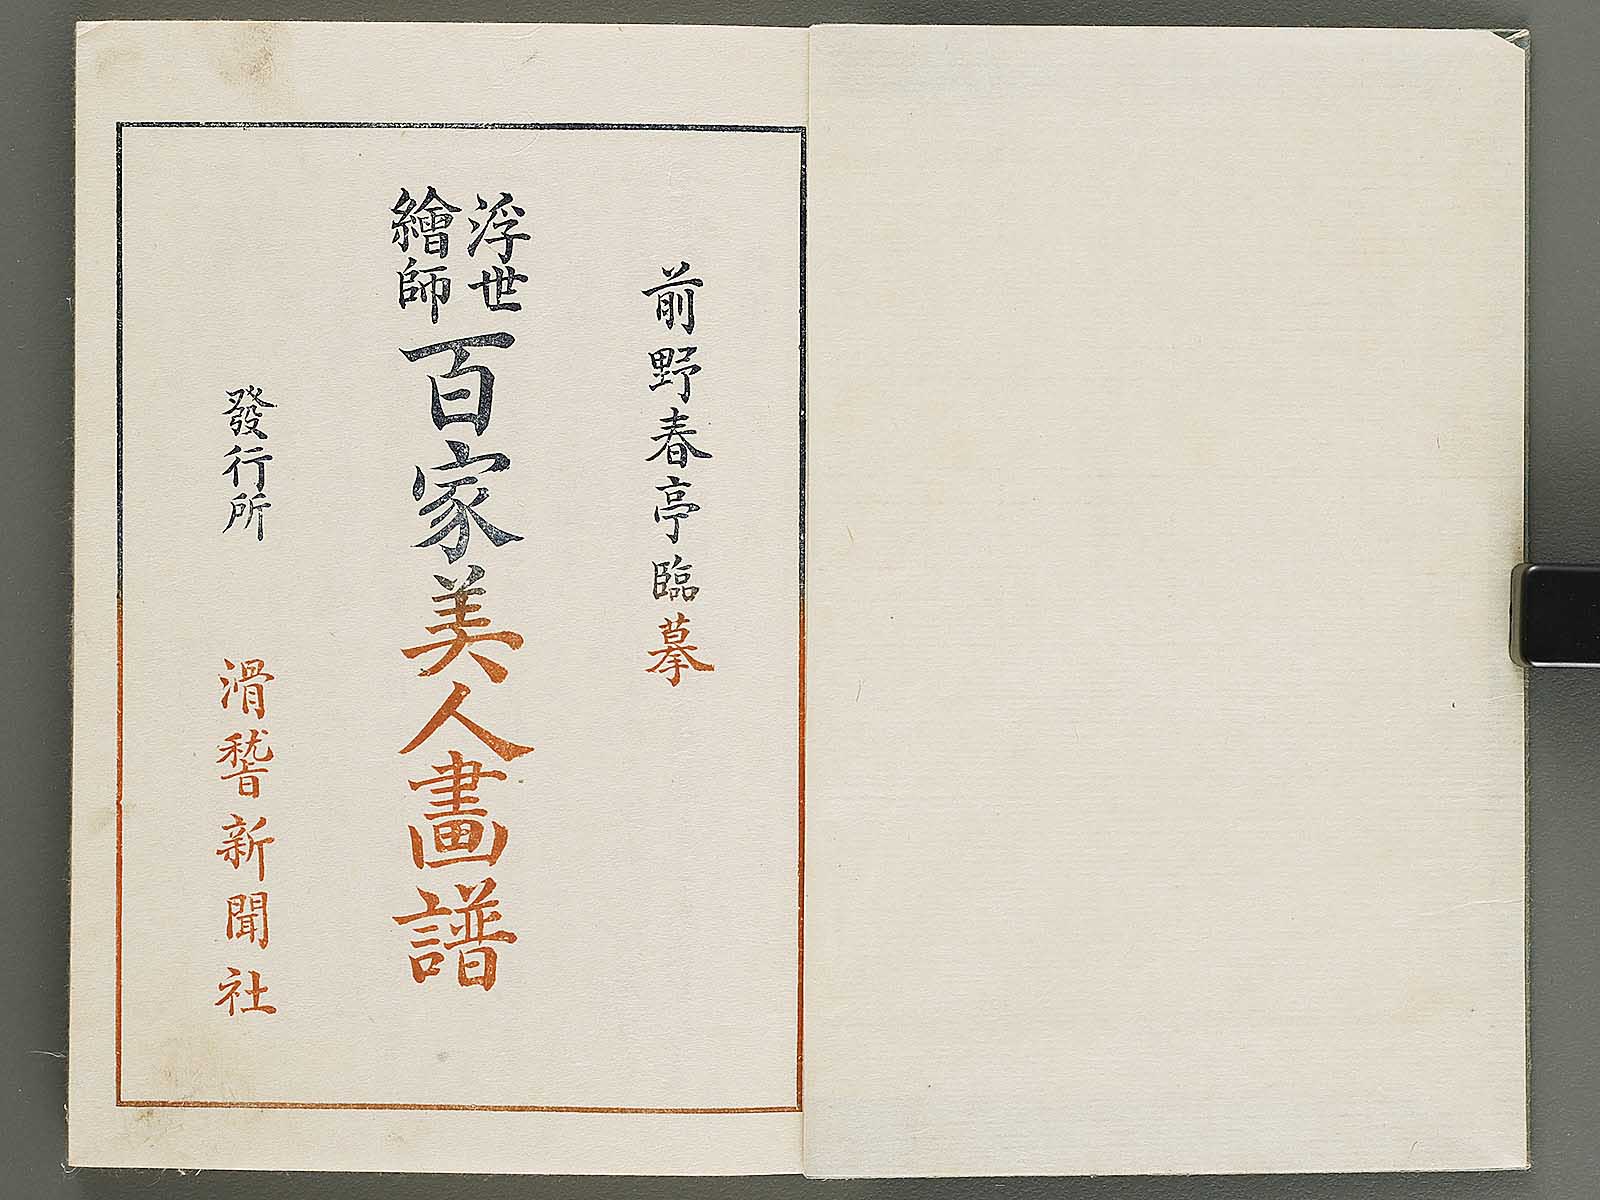 前野春亭臨摹
浮世繪師百家美人畫譜
發行所 滑稽新聞社